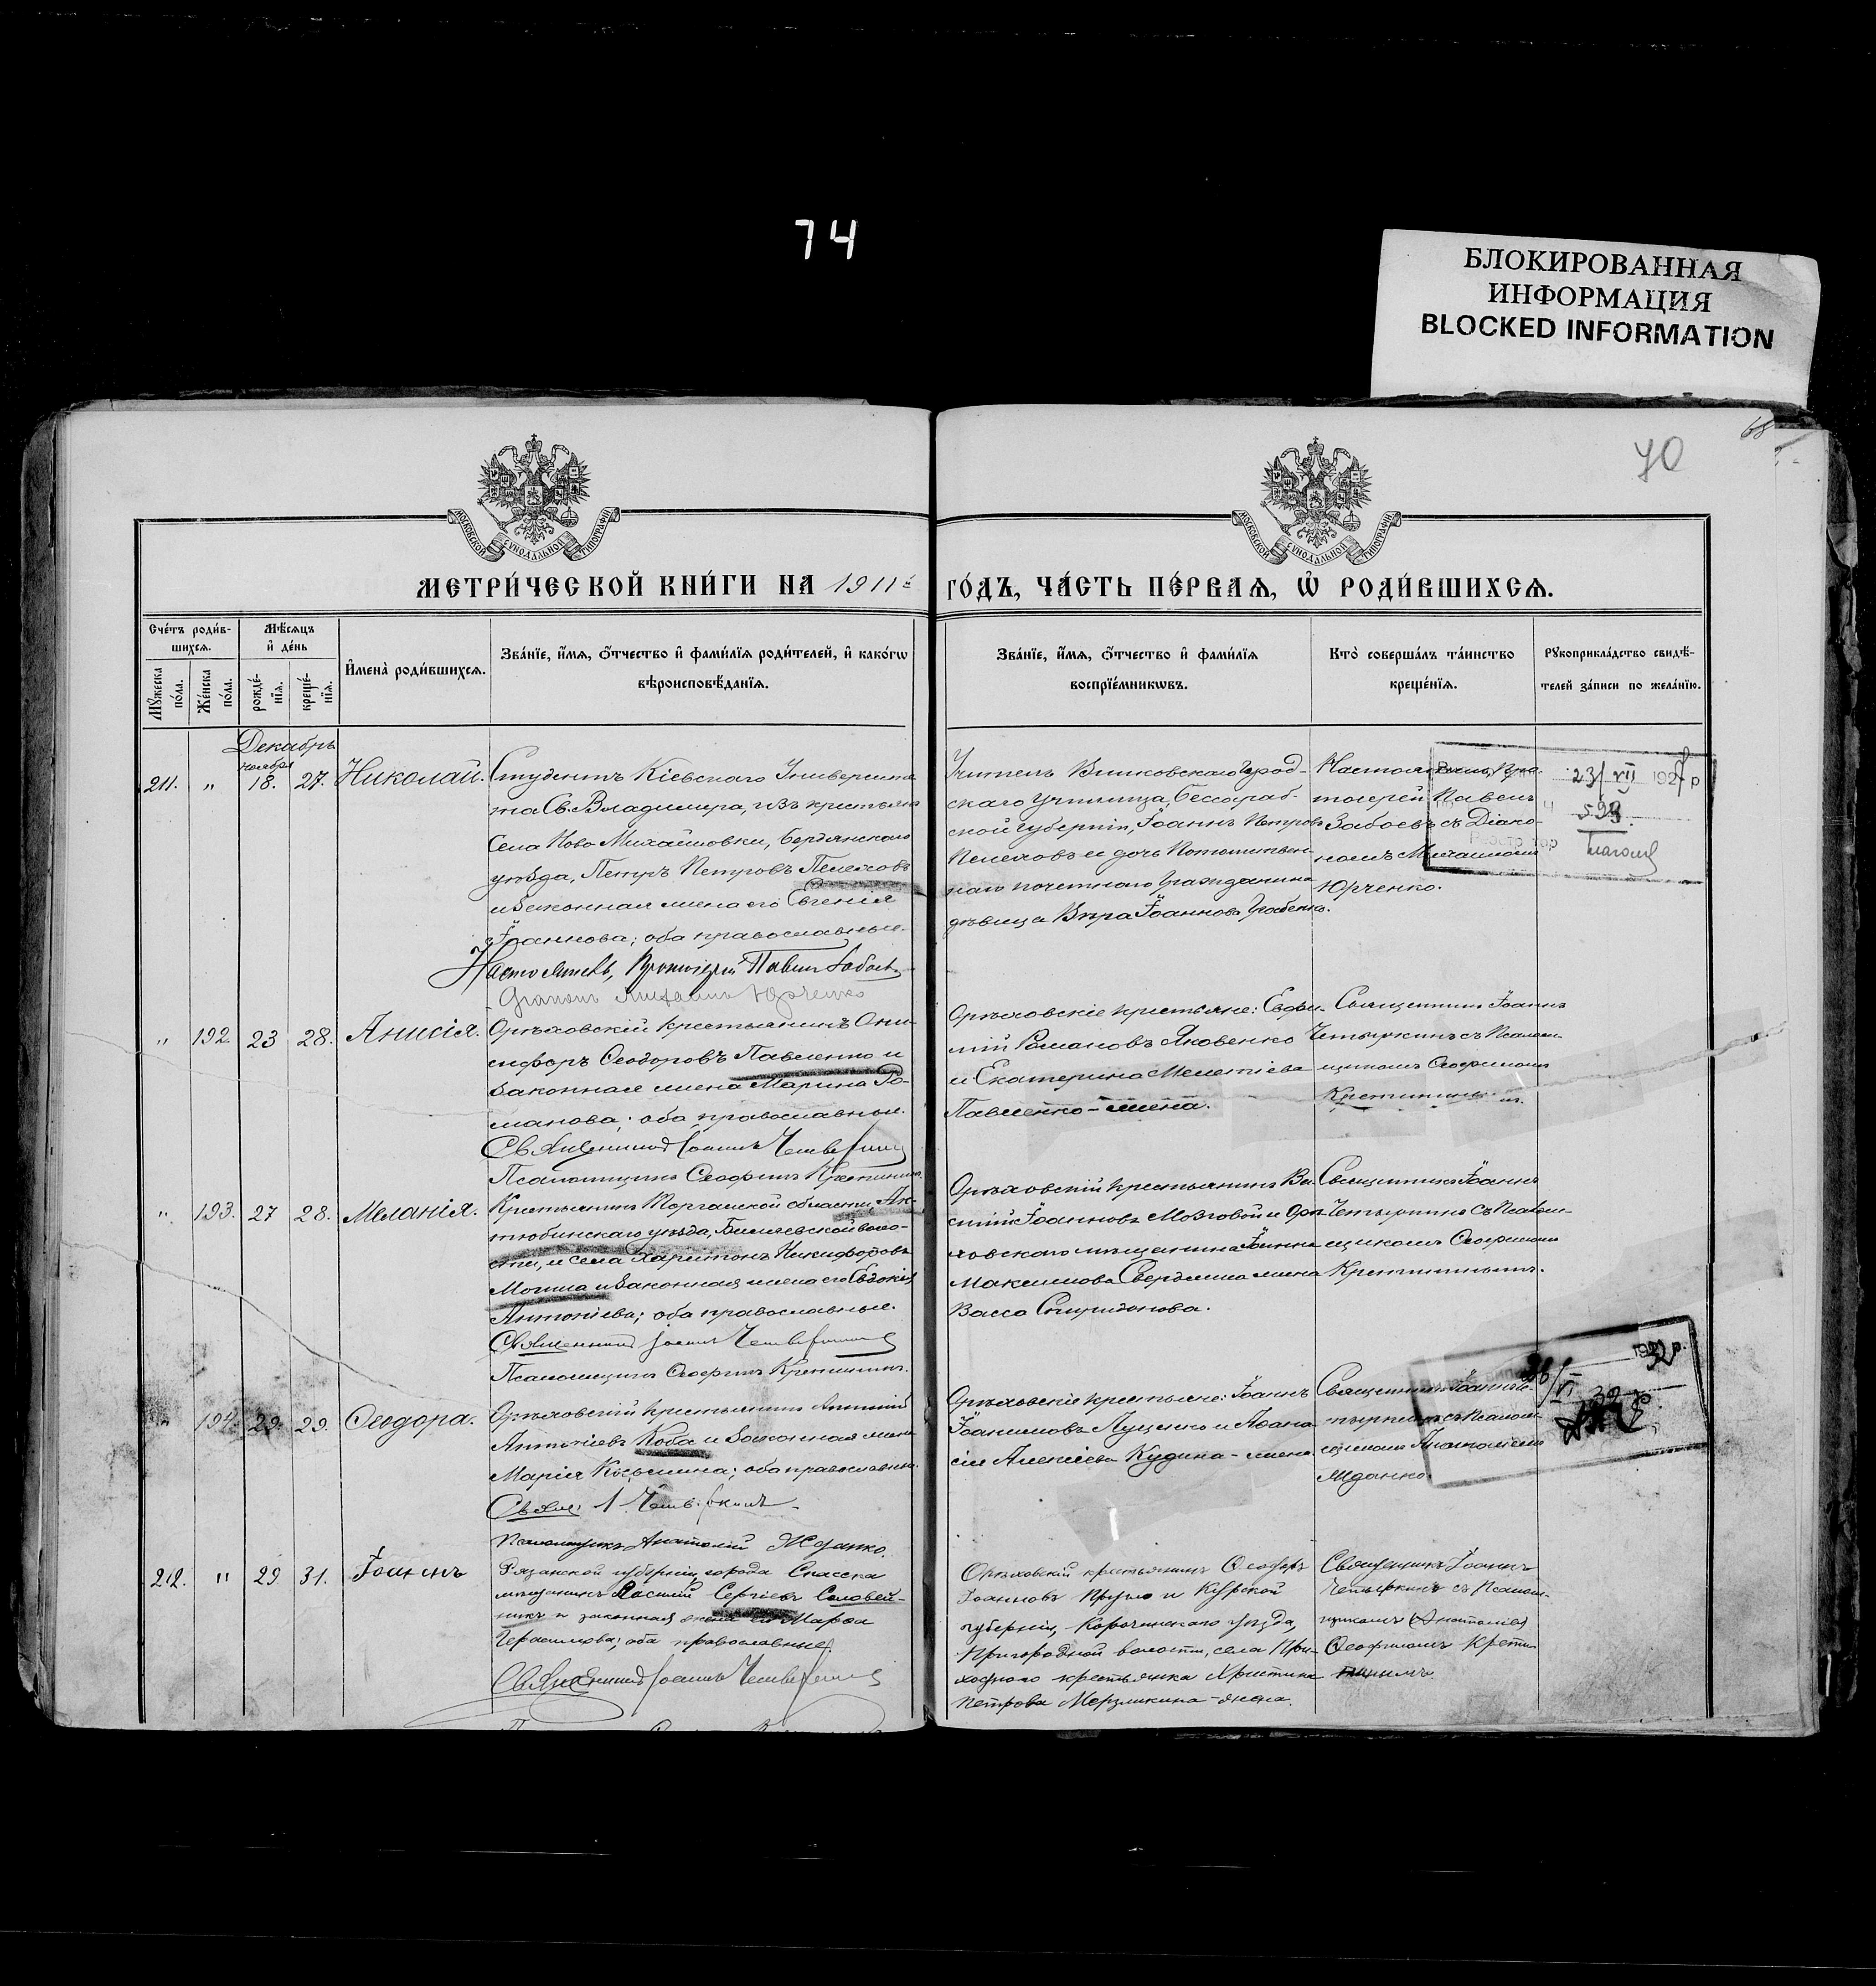 74
БЛОКИРОВАННАЯ
ИНФОРМАЦИЯ
BLOCKED INFORMATION
68
70
МОСКОВСКОЙ СѴНОДАЛЬНОЙ ТИПОГРАФІИ
МОСКОВСКОЙ СѴНОДАЛЬНОЙ ТИПОГРАФІИ
МЕТРИ́ЧЕСКОЙ КНИ́ГИ НА 1911й
ГО́ДЪ, ЧА́СТЬ ПЕ́РВАЯ, Ѡ҆ РОДИ́ВШИХСЯ.
Сче́тъ роди́в-
шихсѧ.
Мꙋжеска по́ла.
Же́нска по́ла.
Мѣ́сѧцъ
и҆ де́нь
рожде́-
нїѧ.
креще́-
нїѧ.
И҆мена̀ роди́вшихсѧ.
Зва́нїе, и҆́мѧ, ѻ҆́тчество и҆ фами́лїѧ роди́телей, и҆ како́гѡ
вѣроисповѣ́данїѧ.
Зва́нїе, и҆́мѧ, ѻ҆́тчество и҆ фами́лїѧ
воспрїе́мникѡвъ.
Кто̀ соверша́лъ та́инство
креще́нїѧ.
Рꙋкоприкла́дство свидѣ́-
телей за́писи по жела́нїю.
Декабрь
ноября
211. " 18. 27. Николай.
Студентъ Кіевскаго Университе
та Св. Владиміра, изъ крестьянъ
Села Ново Михайловки, Бердянскаго
уѣзда, Петръ Петровъ Пелеховъ
и законная жена его Евгенія
Іоаннова; оба православные.
Настоятель, Протоіерей Павелъ Забоевъ
Діаконъ Михаилъ Юрченко
Учитель Град-
скаго училища, Бессараб-
ской губерніи, Іоаннъ Петровъ
Пелеховъ и дочь Потомствен-
наго почетнаго гражданина
дѣвица Вѣра Іоаннова
Настоятель, Про-
тоіерей Павелъ
Забоевъ съ Діако-
номъ Михаиломъ
Юрченко.
23/VII 1927 р
" 192. 23 28. Анисія.
Орѣховскій крестьянинъ Они-
сифоръ Ѳеодоровъ Павленко и
законная жена Марина Ро-
манова; оба православные.
Священникъ Іоаннъ Четыркинъ
Псаломщикъ Ѳеофилъ Кретининъ.
Орѣховскіе крестьяне: Евфи-
мій Романовъ Яковенко
и Екатерина Мелетіева
Павленко-жена.
Священникъ Іоаннъ
Четыркинъ съ Псалом-
щикомъ Ѳеофиломъ
" 193. 27 28. Меланія.
Крестьянинъ Торгайской области, Ак-
тюбинскаго уѣзда, воло-
сти, и села Харитонъ Никифоровъ
и законная жена его Евдокія
Антоніева; оба православные.
Священникъ Іоаннъ Четыркинъ
Псаломщикъ Ѳеофилъ Кретининъ.
Орѣховскій крестьянинъ Ва-
силій Іоанновъ Мозговой и Орѣ-
ховскаго мѣщанина Іоанна
Максимова жена
Васса Спиридонова.
Священникъ Іоаннъ
Четыркинъ съ Псалом-
щикомъ Ѳеофиломъ
Кретининымъ.
" 194. 29. 29. Ѳеодора.
Орѣховскій крестьянинъ
Коба и законная жена
Марія Косьмина; оба православные.
Псаломщикъ Анатолій Жданко.
Орѣховскіе крестьяне: Іоаннъ
Луценко и Аѳана-
сія Алексіева Кудина-жена
Священникъ Іоаннъ
съ Псалом-
щикомъ Анатоліемъ
Жданко.
212. " 29 31. Іоаннъ
Рязанской губерніи, города Спасска
мѣщанинъ Сергіевъ Соловей-
никъ и законная жена его Марѳа
Герасимова; оба православные
Священникъ Іоаннъ Четыркинъ
Орѣховскій крестьянинъ
Іоанновъ и Курской
губерніи, Корочинскаго уѣзда,
Пригородной волости, села При-
крестьянка Христина
Петрова Мерзликина-жена.
Священникъ Іоаннъ
Четыркинъ съ Псалом-
щикомъ (Анатоліемъ)
Ѳеофиломъ Крети-
нинымъ